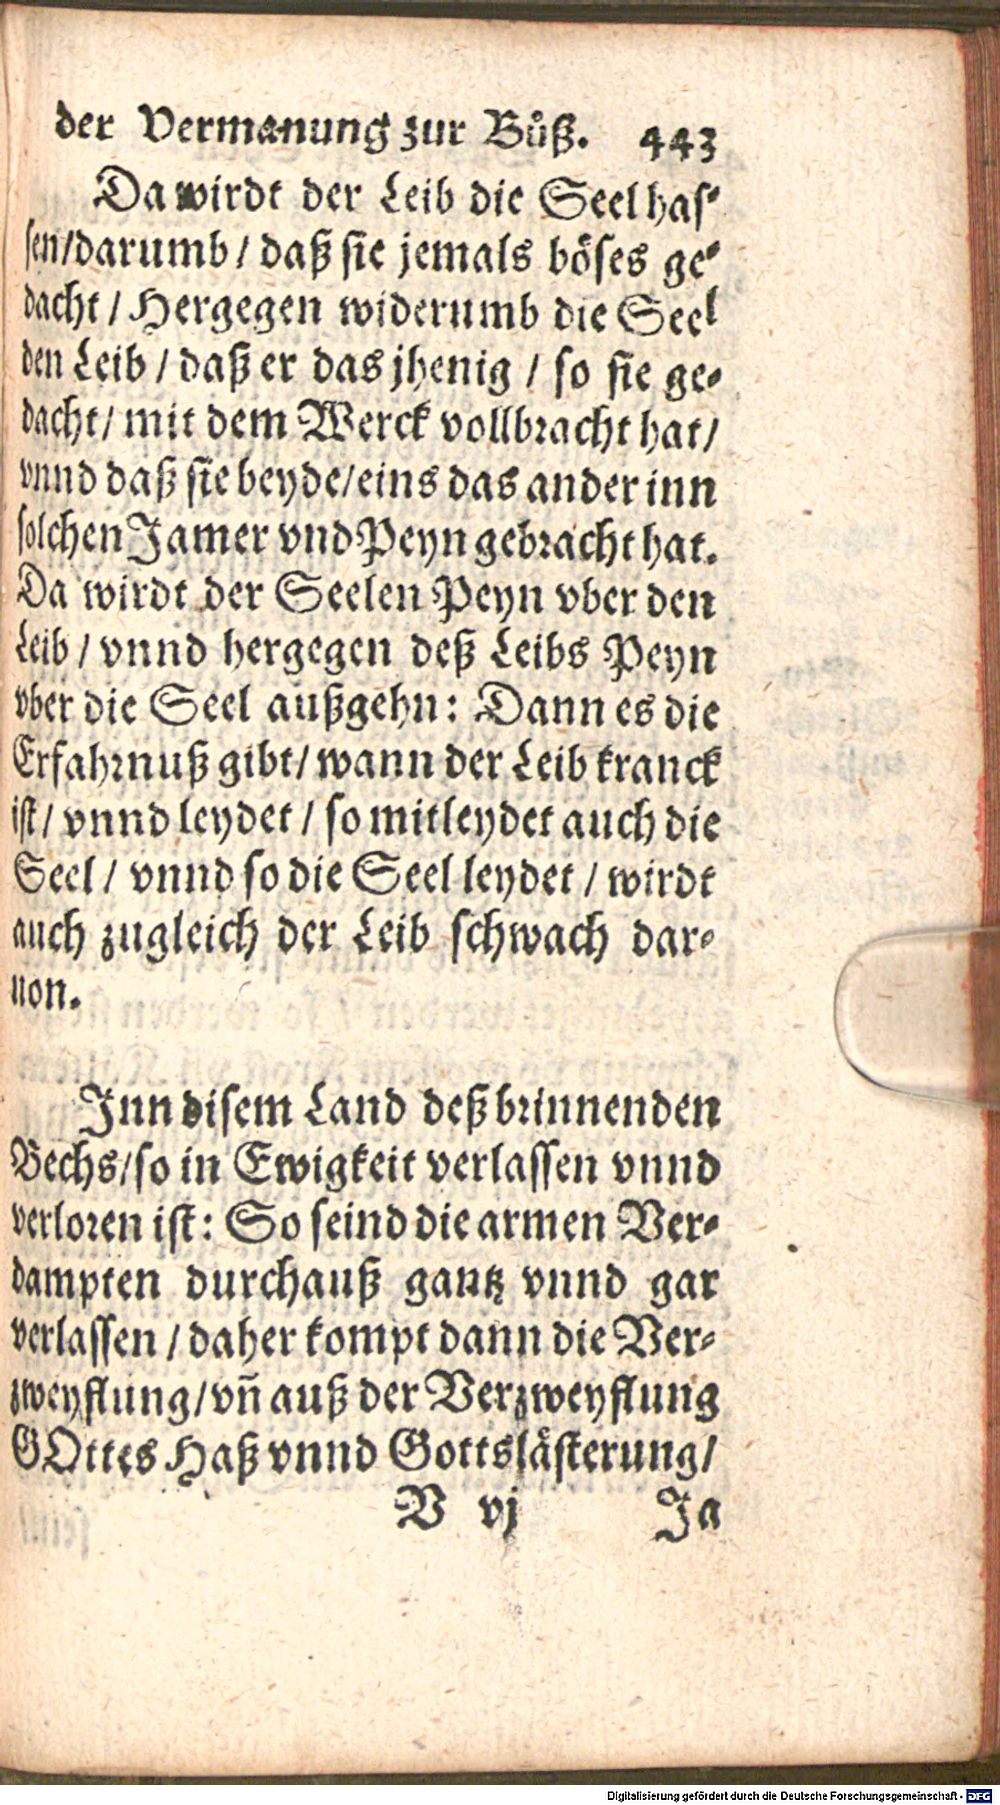 der Vermanung zur Bůß. 443
Da wirdt der Leib die Seel has⸗
sen/darumb/ daß sie jemals böses ge⸗
dacht/ Hergegen widerumb die Seel
den Leib/ daß er das jhenig/ so sie ge⸗
dacht/ mit dem Werck vollbracht hat/
vnnd daß sie beyde/eins das ander inn
solchen Jamer vnd Peyn gebracht hat.
Da wirdt der Seelen Peyn vber den
Leib/ vnnd hergegen deß Leibs Peyn
vber die Seel außgehn: Dann es die
Erfahrnuß gibt/ wann der Leib kranck
ist/ vnnd leydet/ so mitleydet auch die
Seel/ vnnd so die Seel leydet/ wirdt
auch zugleich der Leib schwach dar⸗
uon.
Inn disem Land deß brinnenden
Bechs/so in Ewigkeit verlassen vnnd
verloren ist: So seind die armen Ver⸗
dampten durchauß gantz vnnd gar
verlassen/ daher kompt dann die Ver⸗
zweyflung/vñ auß der Verzweyflung
GOttes Haß vnnd Gottslästerung/
V vj Ja
Digitalisierung gefördert durch die Deutsche Forschungsgemeinschaft - DFG